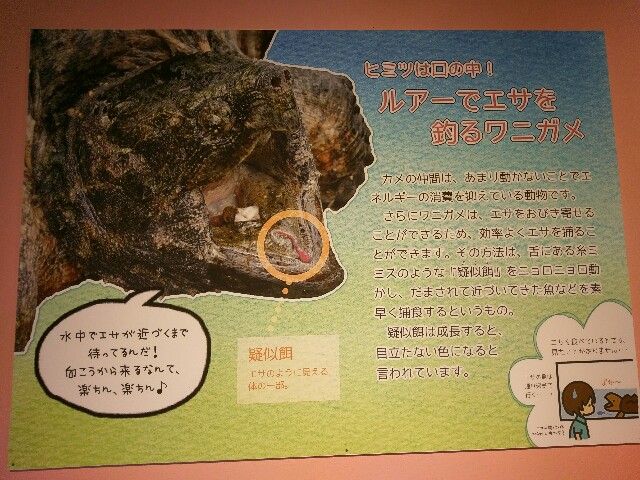 ヒミツは口の中！
ルアーでエサを
釣るワニガメ
カメの仲間は、あまり動かないことでエ
ネルギーの消費を抑えている動物です。
さらにワニガメは、エサをおびき寄せる
ことができるため、効率よくエサを捕るこ
とができます。その方法は、舌にある糸ミ
ミズのような『疑似餌』をニョロニョロ動
かし、だまされて近づいてきた魚などを素
早く捕食するというもの。
疑似餌は成長すると、
目立たない色になると
言われています。
水中でエサが近づくまで
待ってるんだ！
向こうから来るなんて、
楽ちん、楽ちん♪
疑似餌
エサのように見える
体の一部。